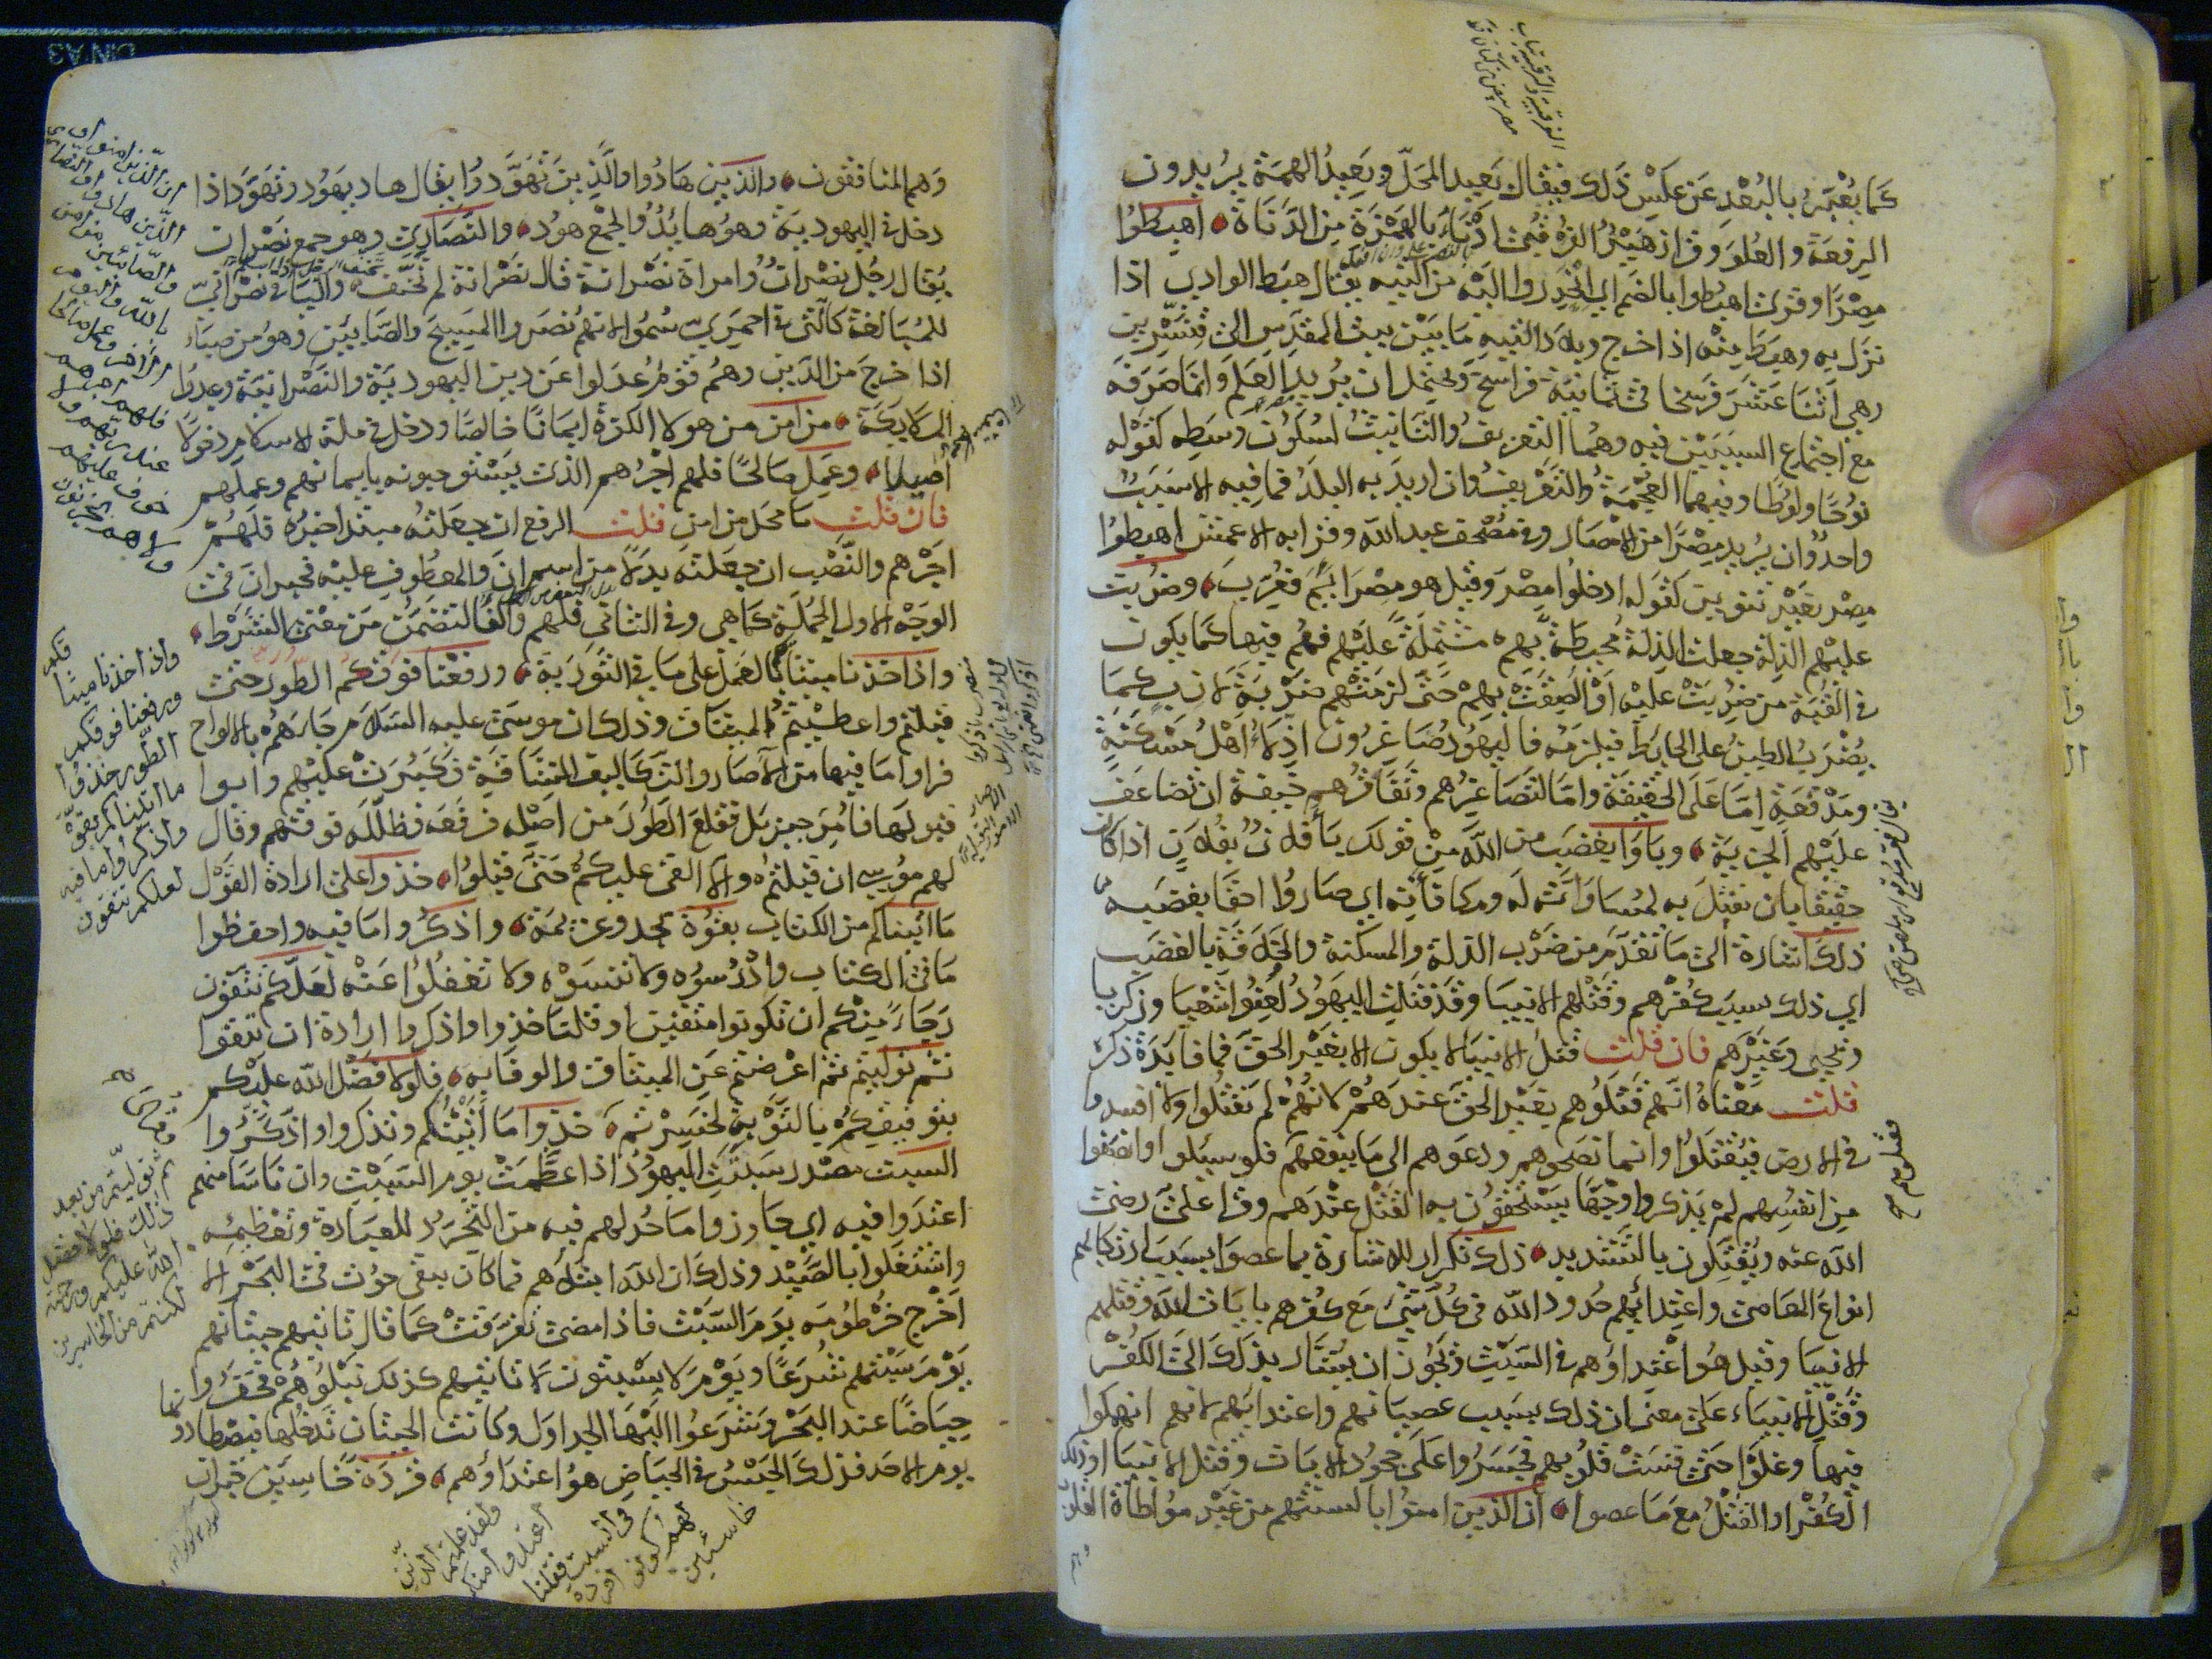 كما يعبر بالبعد عن عكس ذلك فيقال بعيد المحل وبعيد الهمة يريدون
الرفعة والعلو وقرا زهير الفرقبي ادناء بالهمزة من الدناءة اهبطوا
مصرا وقرئ اهبطوا بالضم اي انحدروا اليه من التيه يقال هبط الوادي اذا
نزل به وهبط منه اذا خرج وبلاد التيه ما بين بيت المقدس الى قنسرين
وهي اثنا عشر فرسخا في ثمانية فراسخ ويحتمل ان يريد العلم وانما صرفه
مع اجتماع السببين فيه وهما التعريف والتانيث لسكون وسطه كقوله
نوحا ولوطا وفيهما العجمة والتعريف وان اريد به البلد فما فيه الا سبب
واحد وان يريد مصرا من الامصار وفي مصحف عبد الله وقرا به الاعمش اهبطوا
مصر بغير تنوين كقوله ادخلوا مصر وقيل هو مصرايم فعرب وضربت
عليهم الذلة جعلت الذلة محيطة بهم مشتملة عليهم فهم فيها كما يكون
في القبة من ضربت عليه او الصقت بهم حتى لزمتهم ضربة لازب كما
يضرب الطين على الحايط فيلزمه فاليهود صاغرون اذلاء اهل مسكنة
ومدقعة اما على الحقيقة واما لتصاغرهم وتفاقرهم خيفة ان تضاعف
عليهم الجزية وباوا بغضب من الله من قولك باء فلان بفلان اذا كان
حقيقا بان يقتل به لمساواته له ومكافاته اي صاروا احقا بغضبه
ذلك اشارة الى ما تقدم من ضرب الذلة والمسكنة والخلاقة بالغضب
اي ذلك بسبب كفرهم وقتلهم الانبيا وقد قتلت اليهود لعنوا شعيا وزكريا
ويحيى وغيرهم فان قلت قتل الانبيا لا يكون الا بغير الحق فما فايدة ذكره
قلت معناه انهم قتلوهم بغير الحق عندهم لانهم لم يقتلوا ولا افسدوا
في الارض فيقتلوا وانما نصحوهم ودعوهم الى ما ينفعهم فلو سيلوا وانصفوا
من انفسهم لم يذكروا وجها يستحقون به القتل عندهم وقرا علي رضي
الله عنه ويقتلون بالتشديد ذلك تكرار للاشارة بما عصوا بسبب ارتكابهم
انواع المعاصي واعتدائهم حدود الله في كل شي مع كفرهم بايات الله وقتلهم
الانبيا وقيل هو اعتداوهم في السبت ويجوز ان يشار بذلك الى الكفر
وقتل الانبياء على معنى ان ذلك بسبب عصيانهم واعتدائهم لانهم انهمكوا
فيها وغلوا حتى قست قلوبهم فجسروا على جحود الايات وقتل الانبيا او ذلك
الكفر او القتل مع ما عصوا ان الذين امنوا بالسنتهم من غير مواطاة القلوب
وهم المنافقون والذين هادوا والذين تهودوا يقال هاد يهود وتهود اذا
دخل في اليهودية وهو هايد والجمع هود والنصارى وهو جمع نصران
يقال رجل نصران وامراة نصرانة قال نصرانة لم تحنف والياء في نصراني
للمبالغة كالتي في احمري سموا لانهم نصروا المسيح والصابيين وهو من صباء
اذا خرج من الدين وهم قوم عدلوا عن دين اليهودية والنصرانية وعبدوا
الملايكة من امن من هولا الكفرة ايمانا خالصا ودخل في ملة الاسلام دخولا
اصيلا وعمل صالحا فلهم اجرهم الذي يستوجبونه بايمانهم وعملهم
فان قلت ما محل من امن قلت الرفع ان جعلته مبتدا خبره فلهم
اجرهم والنصب ان جعلته بدلا من اسم ان والمعطوف عليه فخبر ان في
الوجه الاول الجملة كما هي وفي الثاني فلهم والفا لتضمن من معنى الشرط
واذ اخذنا ميثاقكم بالعمل على ما في التورية ورفعنا فوقكم الطور حتى
قبلتم واعطيتم الميثاق وذلك ان موسى عليه السلام جاءهم بالالواح
فراوا ما فيها من الآصار والتكاليف الشاقة فكبرت عليهم وابوا
قبولها فامر جبريل فقلع الطور من اصله فرفعه فظلله فوقهم وقال
لهم موسى ان قبلتم والا القي عليكم حتى قبلوا خذوا على ارادة القول
ما اتيناكم من الكتاب بقوة بجد وعزيمة واذكروا ما فيه واحفظوا
ما في الكتاب وادرسوه ولا تنسوه ولا تغفلوا عنه لعلكم تتقون
رجاء منكم ان تكونوا متقين او قلنا خذوا واذكروا ارادة ان تتقوا
ثم توليتم ثم اعرضتم عن الميثاق والوفا به فلولا فضل الله عليكم
بتوفيقكم بالتوبة لخسرتم خذوا ما اتيتكم وتذكروا واذكروا
السبت مصدر سبتت اليهود اذا عظمت يوم السبت وان ناسا منهم
اعتدوا فيه اي جاوزوا ما حد لهم فيه من التجرد للعبادة وتعظيمه
واشتغلوا بالصيد وذلك ان الله ابتلاهم فما كان يبقى حوت في البحر الا
اخرج خرطومه يوم السبت فاذا مضى تفرقت كما قال تاتيهم حيتانهم
يوم سبتهم شرعا ويوم لا يسبتون لا تاتيهم كذلك نبلوهم فحفروا
حياضا عند البحر وشرعوا اليها الجداول وكانت الحيتان تدخلها فيصطادونها
يوم الاحد فذلك الحبس في الحياض هو اعتداوهم قردة خاسين خبران
ان الذين امنوا و
الذين هادوا والنصارى
والصابئين من امن
بالله واليوم
الآخر وعمل صالحا
فلهم اجرهم
عند ربهم ولا
خوف عليهم
ولا هم يحزنون
واذ اخذنا ميثاقكم
ورفعنا فوقكم
الطور خذوا
ما اتيناكم بقوة
واذكروا ما فيه
لعلكم تتقون
ثم توليتم من بعد
ذلك فلولا فضل
الله عليكم ورحمته
لكنتم من الخاسرين
ولقد علمتم الذين
اعتدوا منكم
في السبت فقلنا
لهم كونوا قردة
خاسئين